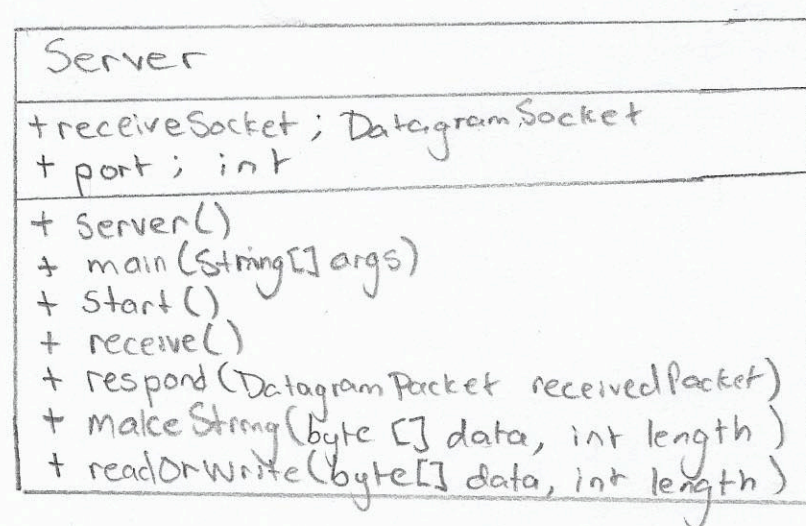 Server
+ receiveSocket ; DatagramSocket
+ port ; int
+ Server()
+ main (String[] args)
+ Start ()
+ receive()
+ respond (DatagramPacket receivedPacket)
+ makeString (byte [] data, int length)
+ readOrWrite (byte[] data, int length)